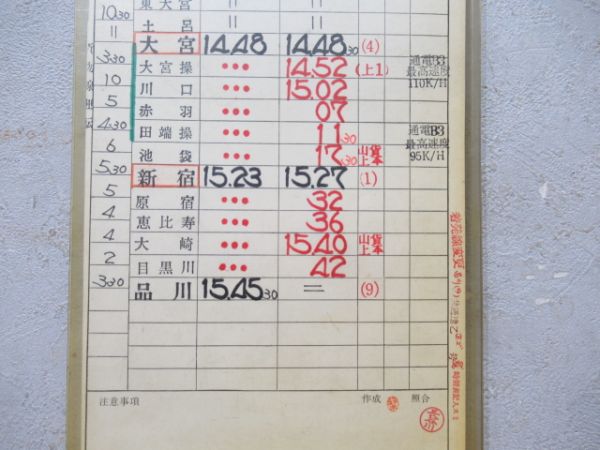 東大宮 〃 〃
10 30 土呂 〃 〃
〃 大宮 14.48 14.48 30 (4)
3 30 大宮操 ••• 14.52 (上1) 通電B3 最高速度 110K/H
10 川口 ••• 15.02
5 赤羽 ••• 07
4 30 田端操 ••• 11 30 通電B3 最高速度 95K/H
6 池袋 ••• 17 30 山貨上本
5 30 新宿 15.23 15.27 (1)
5 原宿 ••• 32
4 恵比寿 ••• 36
4 大崎 ••• 15.40 山貨上本
2 目黒川 ••• 42
3 30 品川 15.45 30 = (9)
注意事項 作成 照合